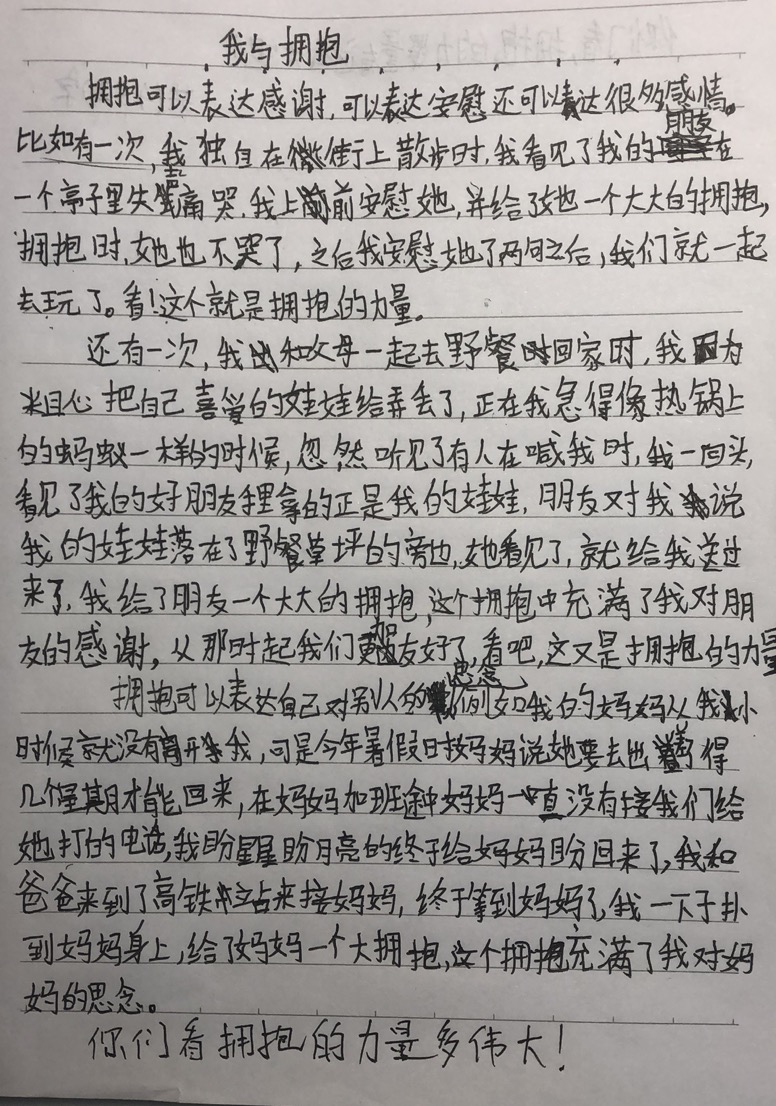 我与拥抱
拥抱可以表达感谢,可以表达安慰还可以表达很多感情。
比如有一次,我独自在街上散步时,我看见了我的朋友在
一个亭子里失声痛哭,我上前安慰她,并给了她一个大大的拥抱,
拥抱时,她也不哭了,之后我安慰她了两句之后,我们就一起
去玩了。看!这个就是拥抱的力量。
还有一次,我和父母一起去野餐回家时,我因为
粗心把自己喜爱的娃娃给弄丢了,正在我急得像热锅上
的蚂蚁一样的时候,忽然听见了有人在喊我时,我一回头,
看见了我的好朋友手里拿的正是我的娃娃,朋友对我说
我的娃娃落在了野餐草坪的旁边,她看见了,就给我送过
来了,我给了朋友一个大大的拥抱,这个拥抱中充满了我对朋
友的感谢,从那时起我们更加友好了,看吧,这又是拥抱的力量
拥抱可以表达自己对别人的思念,例如我的妈妈从我小
时候就没有离开我,可是今年暑假时妈妈说她要去出差了得
几个星期才能回来,在妈妈加班途中妈妈一直没有接我们给
她打的电话,我盼星星盼月亮的终于给妈妈盼回来了,我和
爸爸来到了高铁站来接妈妈,终于等到妈妈了,我一下子扑
到妈妈身上,给了妈妈一个大拥抱,这个拥抱充满了我对妈
妈的思念。
你们看拥抱的力量多伟大!